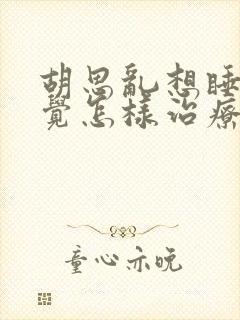 胡思亂想睡
覺怎樣治療
童心亦晚